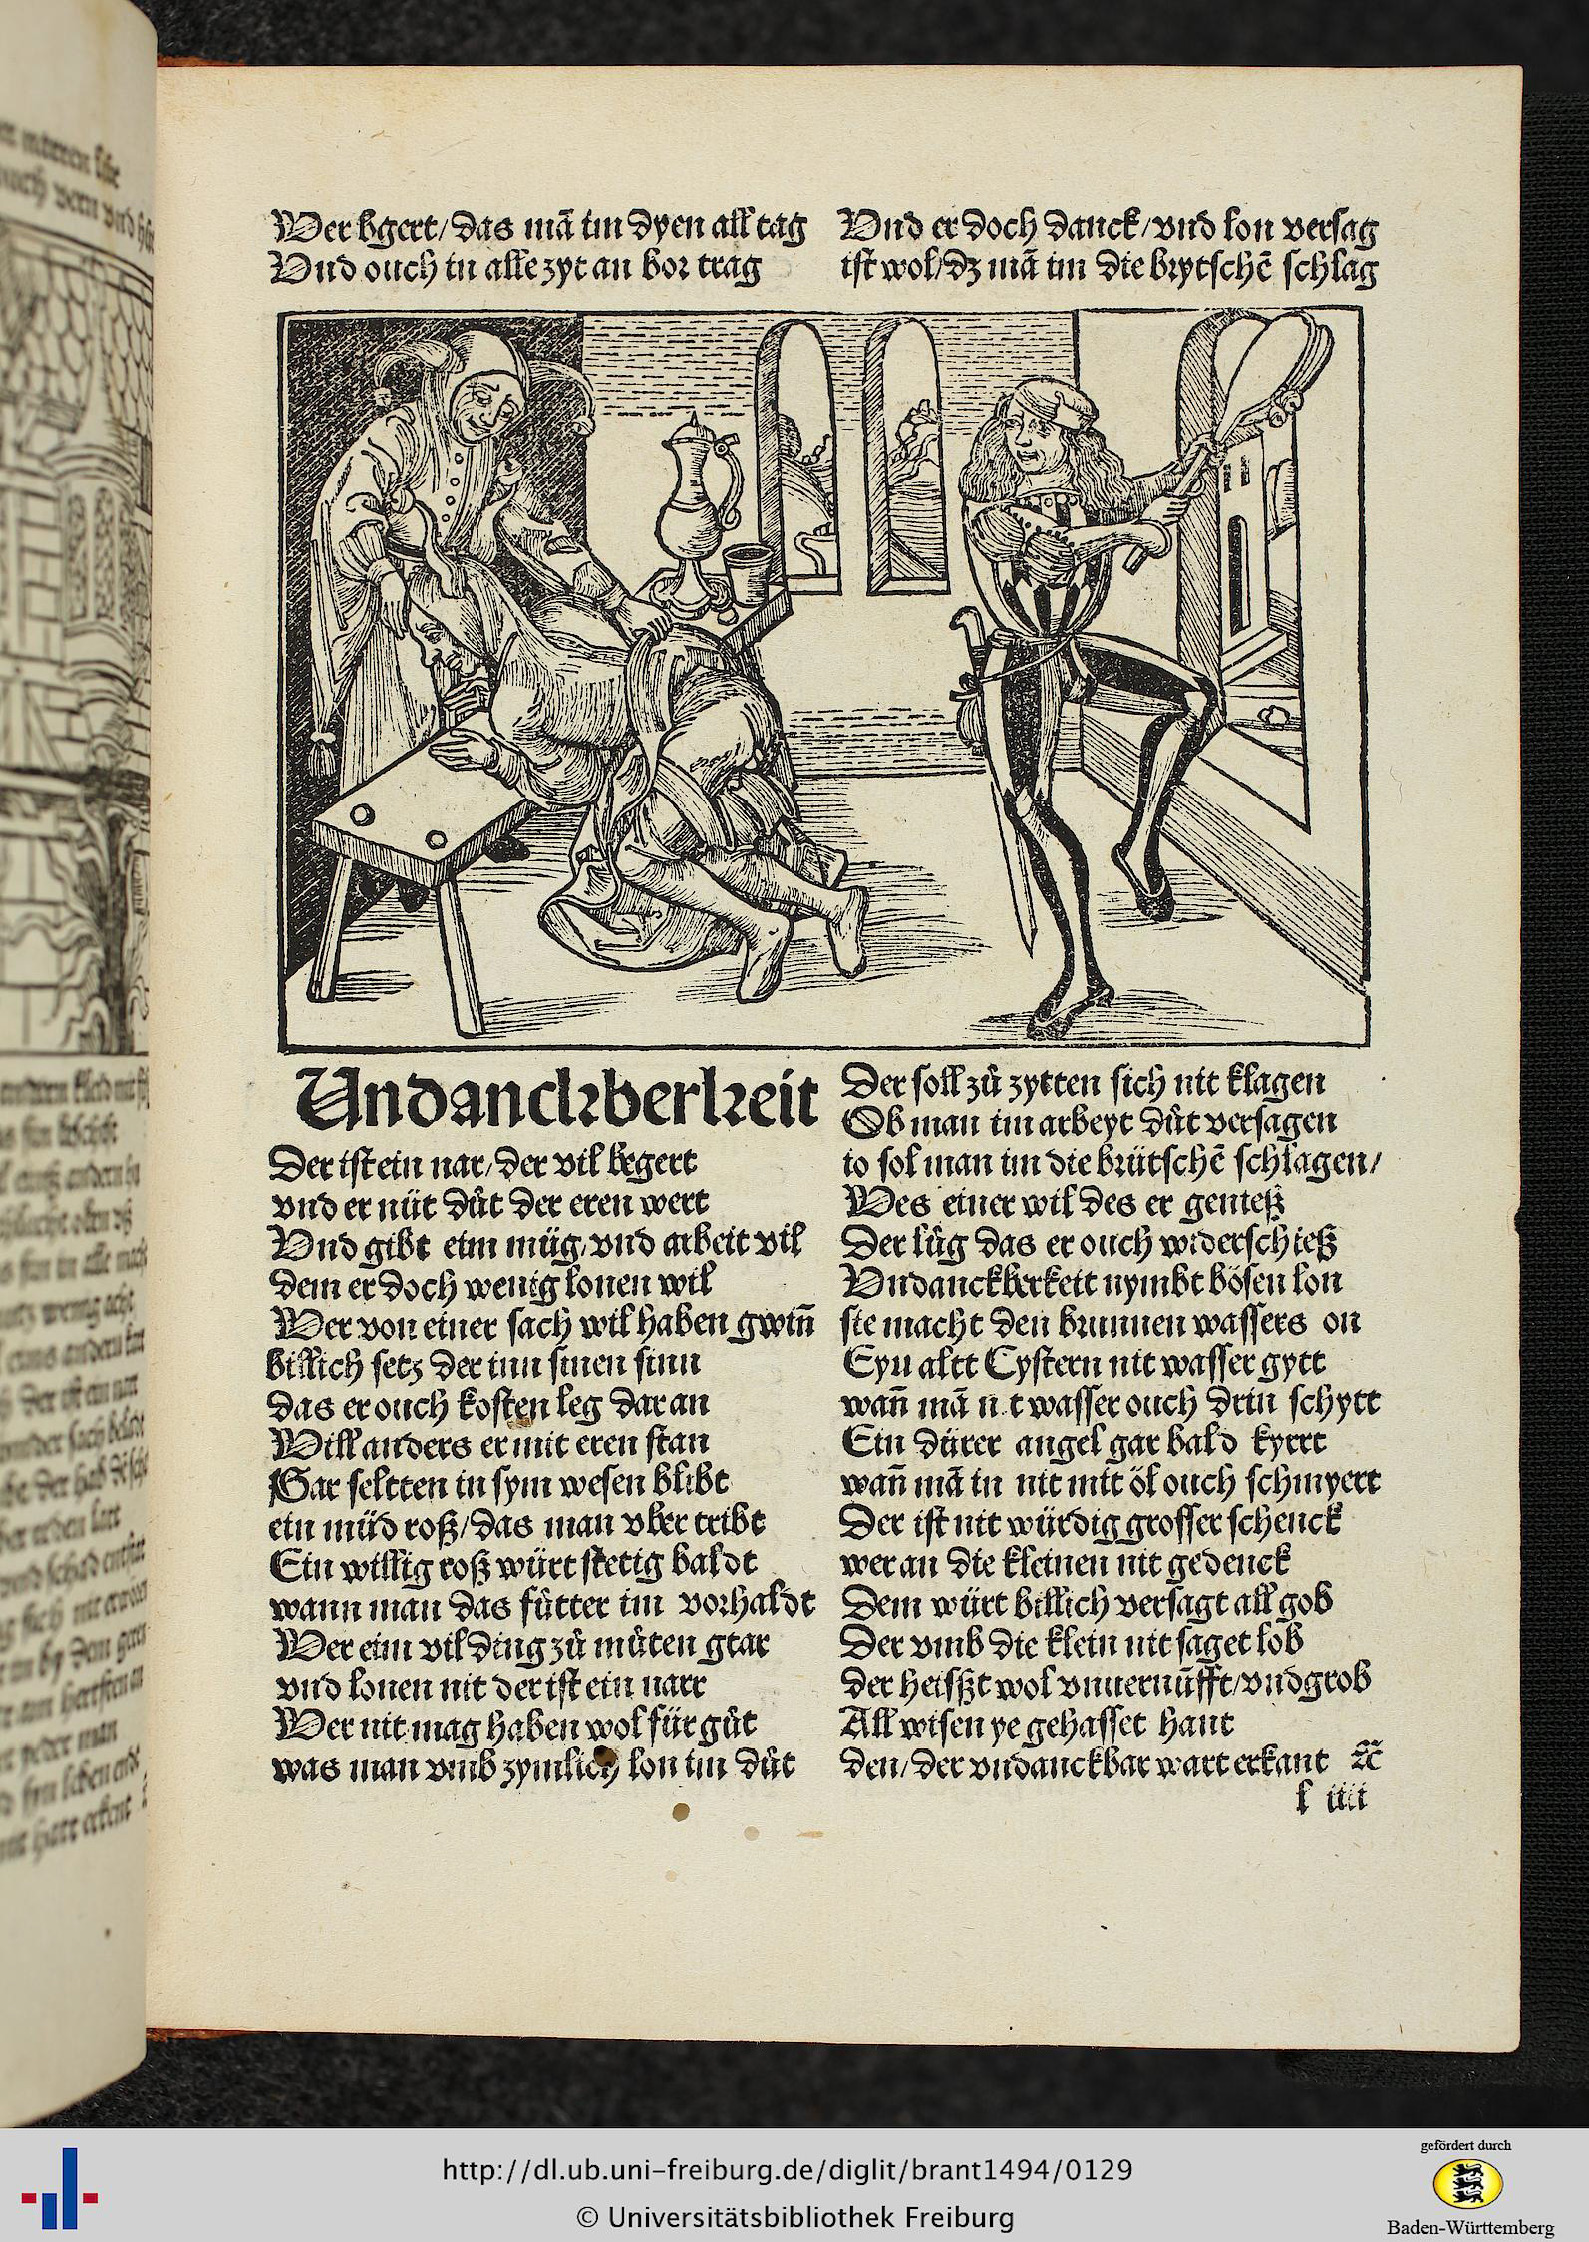 Wer bgert/das mā im dyen all tag
Vnd ouch in alle zyt an bor trag
Vnd er doch danck/vnd lon versag
ist wol/dz mā im die brytschē schlag
Undanckberkeit
Der ist ein nar/der vil begert
vnd er nüt důt der eren wert
Vnd gibt eim müg/vnd arbeit vil
dem er doch wenig lonen wil
Wer von einer sach wil haben gwiñ
billich setz der inn sinen sinn
das er ouch kosten leg dar an
Will anders er mit eren stan
Gar seltten in sym wesen blibt
ein müd roß/das man vber tribt
Ein willig roß würt stetig baldt
wann man das fůtter im vorhaldt
Wer eim vil ding zů můten gtar
vnd lonen nit der ist ein narr
Wer nit mag haben wol für gůt
was man vmb zymlich lon im důt
Der soll zů zytten sich nit klagen
Ob man im arbeyt důt versagen
io sol man im die brütschē schlagen/
Wes einer wil des er genieß
Der lůg das er ouch widerschieß
Vndanckberkeit nymbt bösen lon
sie macht den brunnen wassers on
Eyn altt Cystern nit wasser gytt
wañ mā n t wasser ouch drin schytt
Ein dürer angel gar bald kyrrt
wañ mā in nit mitt öl ouch schmyert
Der ist nit würdig grosser schenck
wer an die kleinen nit gedenck
Dem würt billich versagt all gob
Der vmb die klein nit saget lob
der heisszt wol vnuernüfft/vnd grob
All wisen ye gehasset hant
den/der vndanckbar wart erkant ꝛc̄
l iiii
http://dl.ub.uni-freiburg.de/diglit/brant1494/0129
© Universitätsbibliothek Freiburg
gefördert durch
Baden-Württemberg